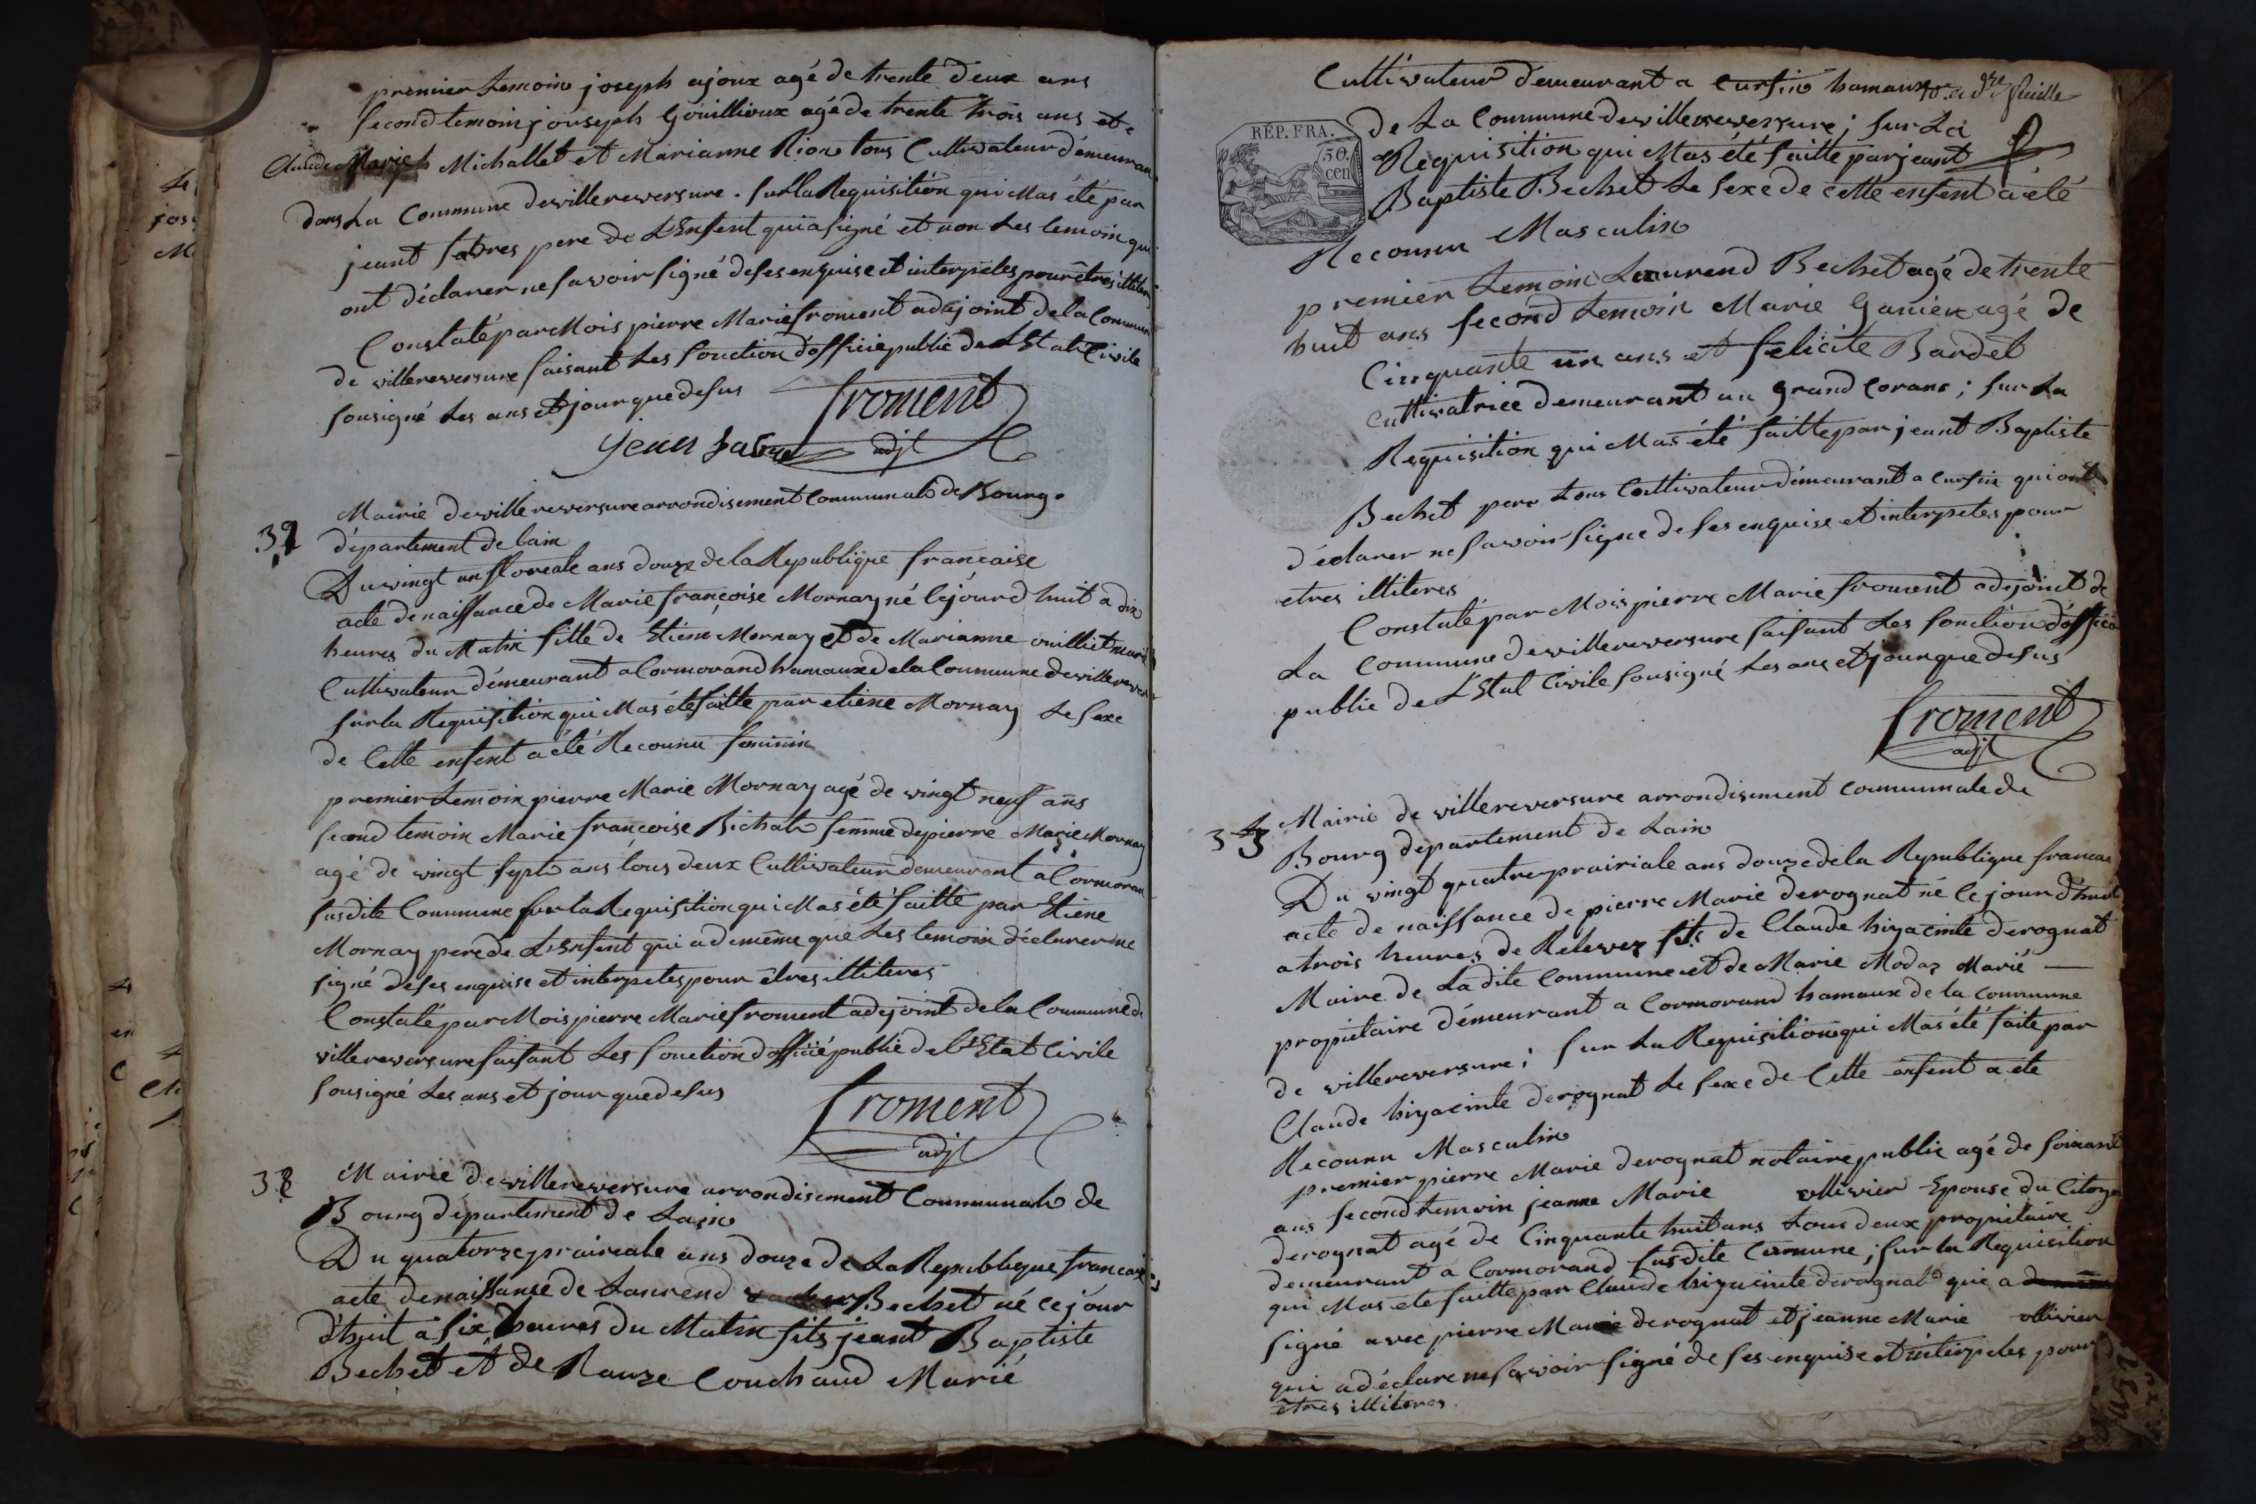 premier temoin joseph ajoux agé de trente deux ans
second temoin jouseph Gouillioux agé de trente trois ans et
Claude Marie Michallet et Marianne Rion tous Cultivateur démeuran
dans La Commune devillereversure. sur la Requisition qui Mas été par
jeant fabres pere de L'Enfent qui a signé et non Les temoin qui
ont déclarer ne savoir signé de ses enquise et interpeles pour êtres illiteres
Constaté par Mois pierre Marie froment adejoint de la Commune
de villereversure faisant Les fonction d'officié public de L'Etat Civile
sousigné Les ans et jour que desus
froment
adjt
jean fabre
Mairie devillereversure arrondisement Communale de Bourg.
département de lain
Du vingt un floreale ans douze de la Republique francaise
acte de naissance de Marie françoise Mornay né cejourd huit a dix
heures du Matin fille de Etiene Mornay et de Marianne marié
Cultivateur démeurant a Cormorand hamaux de la Commune de villerever
sur la Requisition qui Mas été faitte par etiene Mornay Le sexe
de Cette enfent a été Recounu feminin
premier temoin pierre Marie Mornay agé de vingt neuf ans
second temoin Marie françoise Bichat femme de pierre Marie Mornay
agé de vingt sept ans tous deux Cultivateur demeurant a Cormoran
susdite Commune sur la Requisition qui Mas été faitte par Etiene
Mornay pere de L'Enfent qui a demême que Les temoin déclarer ne
signé de ses enquise et interpetes pour êtres illiteres
Constaté par Mois pierre Marie froment adejoint de la Commune de
villereversure faisant Les fonction d'officié public de L'Etat Civile
sousigné Les ans et jour que desus
froment
adjt
Mairie devillereversure arrondisement Communale de
Bourg département de Lain
Du quatorze praireale ans douze de La Republique francaise
acte denaissance de Laurend Bechet né ce jour
d'huit a six heures du Matin fils jeant Baptiste
Bechet et de Rauze Couchaud Marié
Cultivateur demeurant a Cursin hamaux
feuille
RÉP. FRA.
50.
cen
de La Commune devillereversure; sur La
Requisition qui Mas été faitte par jeant
Baptiste Bechet Le sexe de cette enfent a été
Recounu Masculin
premier temoin Laurend Bechet agé de trente
huit ans second temoin Marie Ganier agé de
Cinquante un ans et felicité Bardet
cultivatrice demeurant au grand Corans; sur La
Requisition qui Mas été faitte par jeant Baptiste
Bechet pere tous Cultivateur démeurant a Cursin qui ont
déclarer ne savoir signe de ses enquise et interpetes pour
etres illiteres
Constaté par Mois pierre Marie froment adejoint de
La Commune de villereversure faisant Les fonction d'officié
public de L'Etat Civile sousigné Les ans et jour que desus
froment
adjt
33
Mairie de villereversure arrondisement communale de
Bourg département de Lain
Du vingt quatre prairiale ans douze de la Republique francai
acte de naissance de pierre Marie derognat né ce jour d'huit
a trois heures de Relevez fils de Claude hiyacinte derognat
Maire de Ladite Commune et de Marie Modas Marié
propietaire démeurant a Cormorand hamaux de la commune
de villereversure; sur La Requisition qui Mas été faite par
Claude hiyacinte derognat Le sexe de Cette enfent a été
Recounu Masculin
premier pierre Marie derognat notaire public agé de soixante
ans second temoin jeanne Marie ollivier Epouse du Citoyen
derognat agé de Cinquante huit ans tous deux propietaire
demeurant a Cormorand susdite Commune; sur la Requisition
qui Mas été faitte par Claude hiyacinte derognat qui a
signé avec pierre Marie derognat et jeanne Marie ollivier
qui a déclare ne savoir signé de ses enquise et interpeles pour
êtres illiteres.